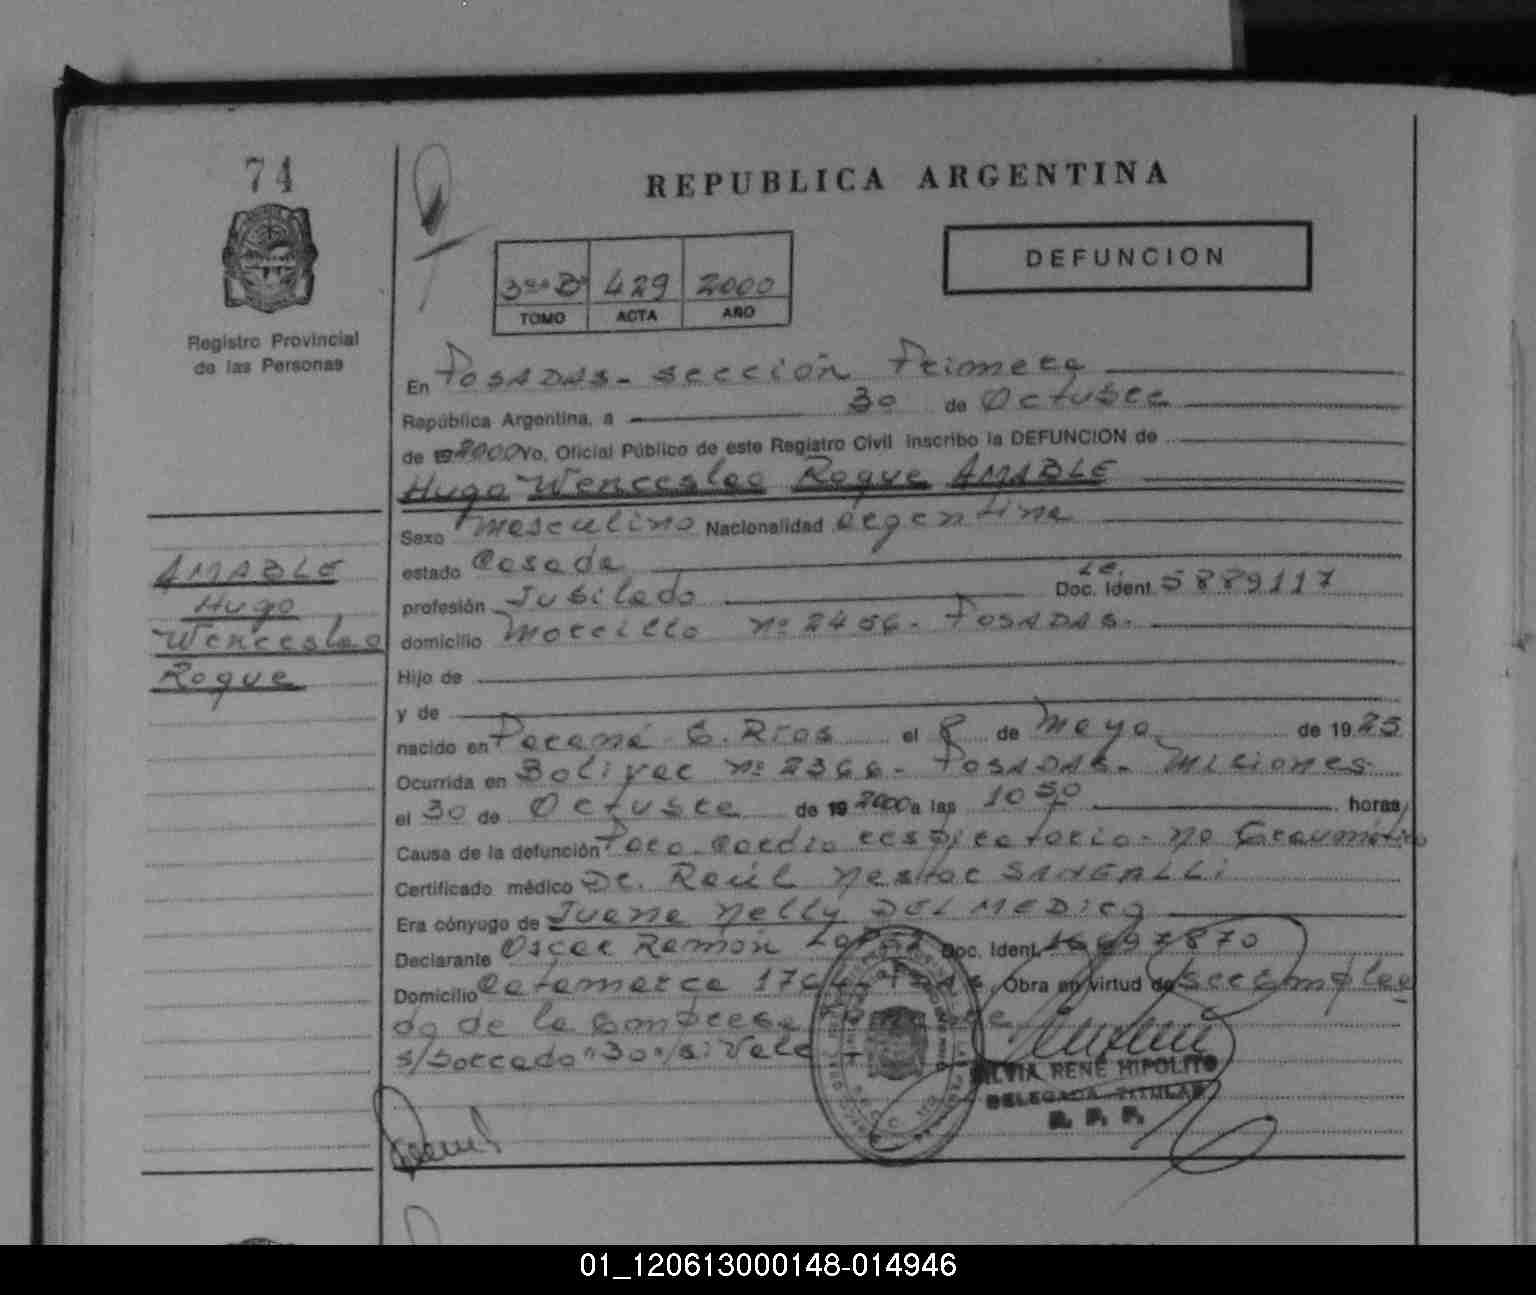 74
REPUBLICA ARGENTINA
DEFUNCION
3ero Bs 429 2000
TOMO ACTA AÑO
Registro Provincial
de las Personas
En Posadas - sección Primera
República Argentina, a 30 de Octubre
de 19 2000 Yo, Oficial Público de este Registro Civil inscribo la DEFUNCION de
Hugo Wenceslao Roque AMABLE
AMABLE
Hugo
Wenceslao
Roque
Sexo Masculino Nacionalidad argentina
estado Casado
profesión Jubilado L.E. Doc. Ident. 5889117
domicilio Morcillo nº 2456 - POSADAS.
Hijo de
y de
nacido en Paraná E. Ríos el 8 de Mayo de 19 25
Ocurrida en Bolívar nº 2366 - POSADAS - Misiones
el 30 de Octubre de 19 2000 a las 10 50 horas
Causa de la defunción Paro cardio respiratorio - no traumático
Certificado médico Dr. Raúl Nestor SANGALLI
Era cónyuge de Juana Nelly DELMEDICO
Declarante Oscar Ramón Doc. Ident. 16697870
Domicilio Catamarca Obra en virtud de ser emplea
do de la Empresa
s/borrado "30"/si Vale
SILVIA RENE HIPOLITO
DELEGADA TITULAR
R. P. P.
01_120613000148-014946